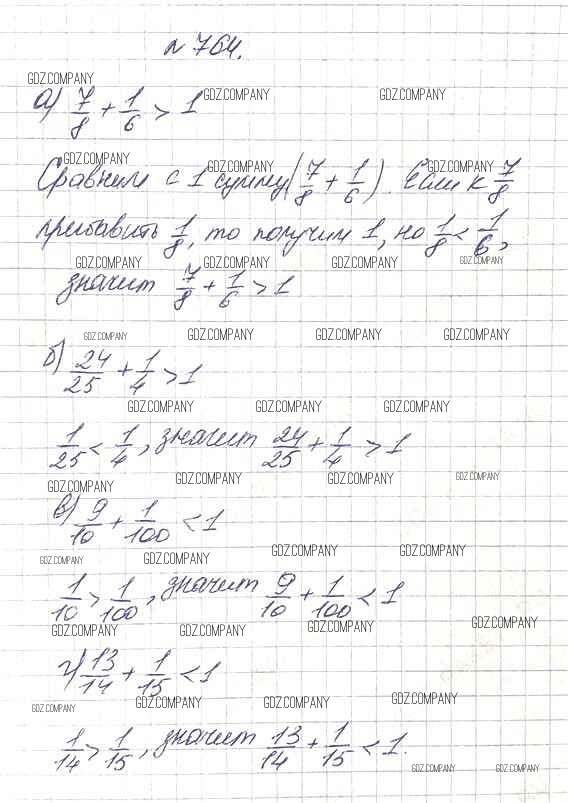 № 764.
GDZ.COMPANY
GDZ.COMPANY GDZ.COMPANY
а) 7/8 + 1/6 > 1
GDZ.COMPANY GDZ.COMPANY GDZ.COMPANY
Сравним с 1 сумму (7/8 + 1/6). Если к 7/8
прибавить 1/8, то получим 1, но 1/8 < 1/6,
GDZ.COMPANY GDZ.COMPANY GDZ.COMPANY GDZ.COMPANY
значит 7/8 + 1/6 > 1
GDZ.COMPANY GDZ.COMPANY GDZ.COMPANY GDZ.COMPANY
б) 24/25 + 1/4 > 1
GDZ.COMPANY GDZ.COMPANY GDZ.COMPANY
1/25 < 1/4, значит 24/25 + 1/4 > 1
GDZ.COMPANY GDZ.COMPANY GDZ.COMPANY GDZ.COMPANY
в) 9/10 + 1/100 < 1
GDZ.COMPANY GDZ.COMPANY GDZ.COMPANY GDZ.COMPANY
1/10 > 1/100, значит 9/10 + 1/100 < 1
GDZ.COMPANY GDZ.COMPANY GDZ.COMPANY GDZ.COMPANY
г) 13/14 + 1/15 < 1
GDZ.COMPANY GDZ.COMPANY GDZ.COMPANY GDZ.COMPANY
1/14 > 1/15, значит 13/14 + 1/15 < 1.
GDZ.COMPANY GDZ.COMPANY